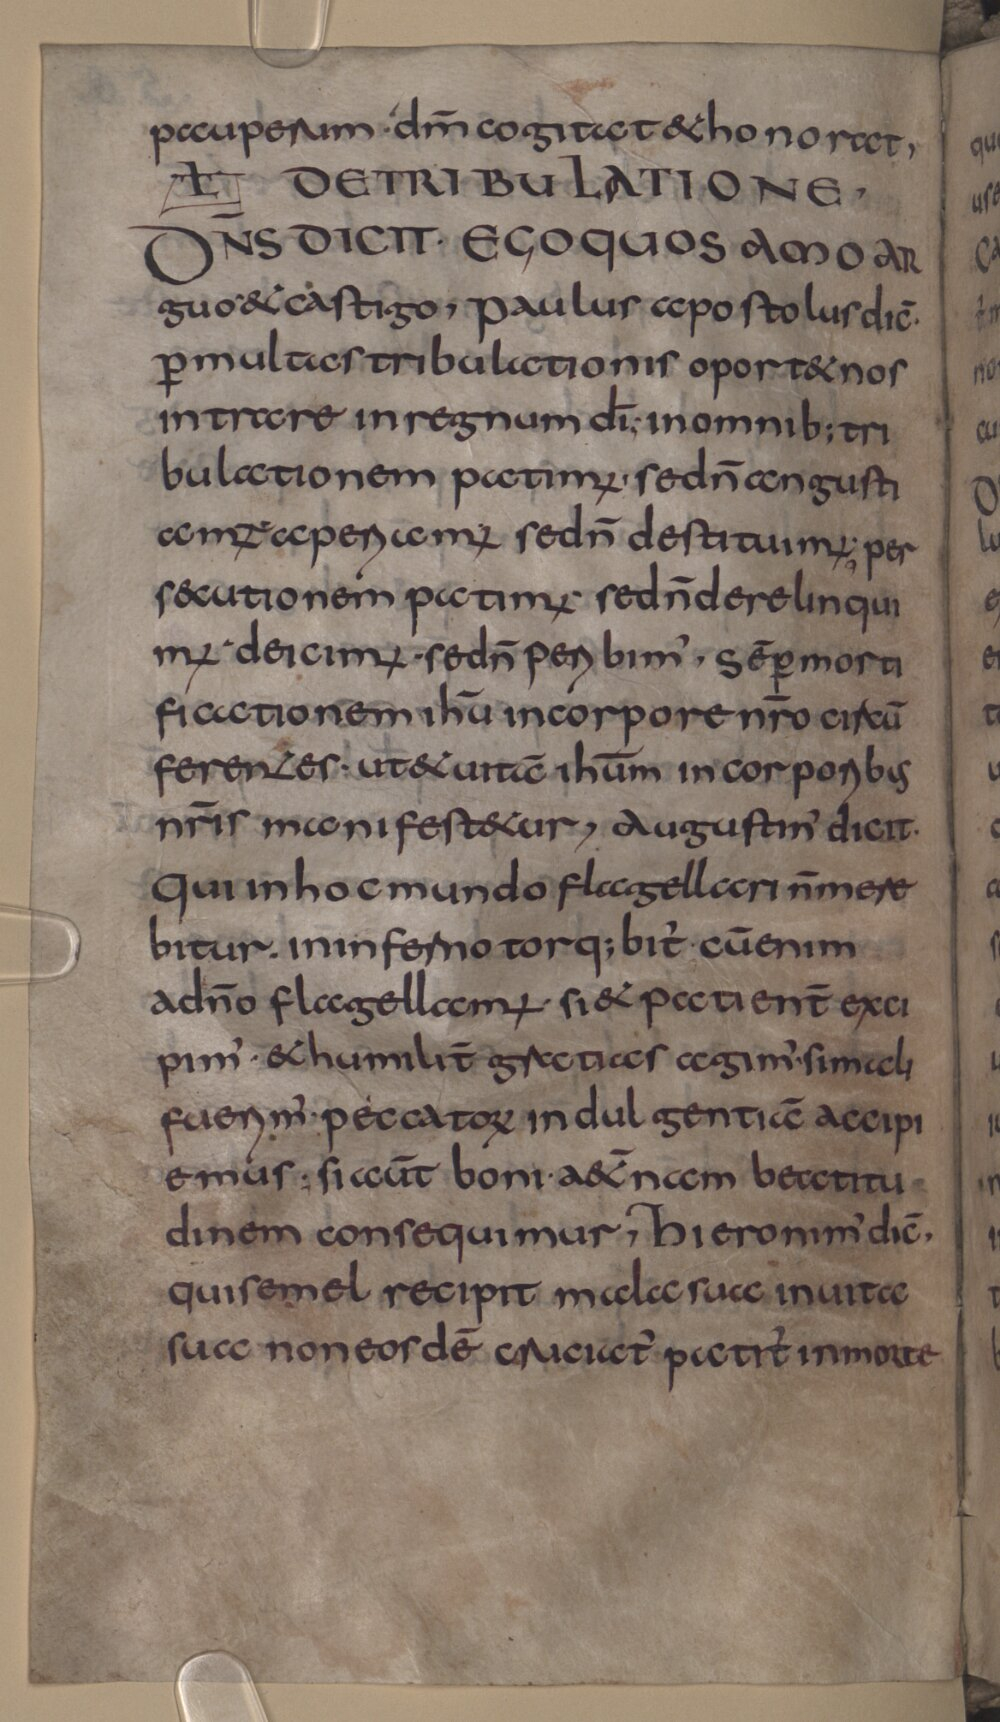 pauperum · dm̄ cogitat & honorat,
Ł DE TRIBULATIONE,
DN̄S DICIT · EGO QUOS AMO AR
guo & castigo, Paulus apostolus dic̄ ·
ꝑ multas tribulationis oport& nos
intrare in regnum dī; in omnib; tri
bulationem patimꝝ · sed n̄ angusti
amꝝ aperiamꝝ sed n̄ destituimꝝ; per
s&cutionem patimꝝ sed n̄ derelinqui
mꝝ deicimꝝ · sed n̄ peribim᾽, Sēꝑ morti
ficationem ihū in corpore nr̄o circū
ferentes · ut & uita ihūm in corporibis
nr̄is manifest&ur, Augustin᾽ dicit ·
Qui in hoc mundo flagellari n̄ mere
bitur · in inferno torq;bit᾽ · cū enim
a dn̄o flagellamꝝ · si & patient̄ exci
pim᾽ · & humilit̄ gratias agim᾽ · si mali
fuerim᾽ · peccatoꝝ indulgentiā accipi
emus · si aūt boni · a&n̄nam beatitu
dinem consequimur, Hieronim᾽ dic̄,
qui semel recipit mala sua in uita
sua non eosdē cruciat᾽ patit᾽ in morte